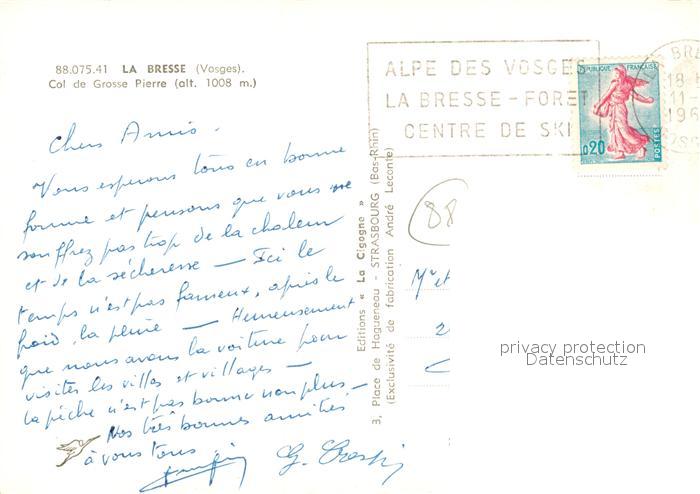 88.075.41 LA BRESSE (Vosges).
Col de Grosse Pierre (alt. 1008 m.)
ALPE DES VOSGES
LA BRESSE-FORET
CENTRE DE SKI
LA BRE
18
11-
196
REPUBLIQUE FRANÇAISE
0,20
POSTES
Chers Amis.
Vous esperons tous en bonne
forme et pensons que vous ne
souffrez pas trop de la chaleur
et de la sécheresse - Ici le
temps n'est pas fameux, après le
froid, la pluie - Heureusement
que nous avons la voiture pour
visiter les villes et villages -
la pêche n'est pas bonne non plus -
Nos très bonnes amitiés
à vous tous
G.
Editions « La Cigogne »
3, Place de Haguenau - STRASBOURG (Bas-Rhin)
(Exclusivité de fabrication André Leconte)
88
Mr et
2
privacy protection
Datenschutz